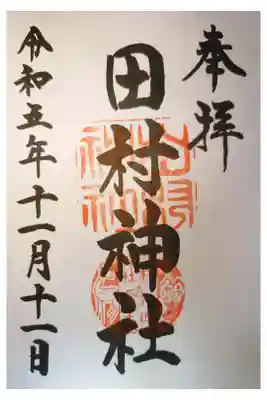 奉拝
田村神社
令和五年十一月十一日